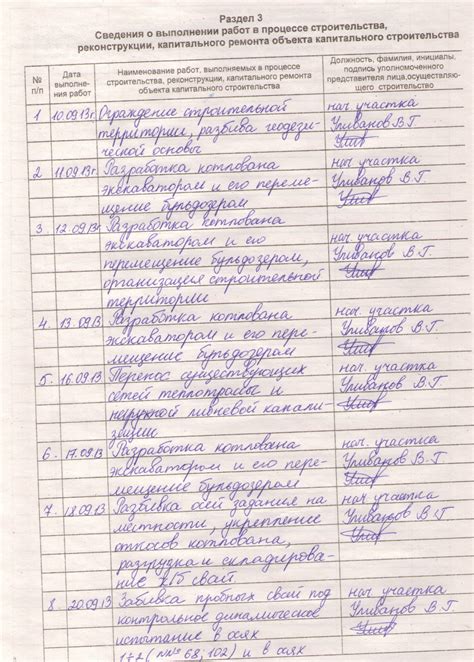 Раздел 3
Сведения о выполнении работ в процессе строительства,
реконструкции, капитального ремонта объекта капитального строительства
№ п/п
Дата выполне-
ния работ
Наименование работ, выполняемых в процессе
строительства, реконструкции, капитального ремонта
объекта капитального строительства
Должность, фамилия, инициалы,
подпись уполномоченного
представителя лица,осуществляюще-
го строительство
1 10.09.13г. Ограждение строительной нач. участка
территории, разбивка геодези- Уливанов В.Г.
ческой основы
2 11.09.13г. Разработка котлована нач. участка
экскаватором и его переме- Уливанов В.Г.
щение бульдозером
3. 12.09.13 Разработка котлована нач. участка
экскаватором и его Уливанов В.Г.
перемещение бульдозером,
организация строительной
территории
4. 13.09.13 Разработка котлована нач. участка
экскаватором и его пере- Уливанов В.Г.
мещение бульдозером
5. 16.09.13 Перенос существующих нач. участка
сетей теплотрассы и Уливанов В.Г.
наружной ливневой канали-
зации
6. 17.09.13 Разработка котлована нач. участка
экскаватором и его пере- Уливанов В.Г.
мещение бульдозером
7. 18.09.13 Разбивка осей здания на нач. участка
местности, укрепление Уливанов В.Г.
откосов котлована,
разгрузка и складирова-
ние свай
8. 20.09.13 Забивка пробных свай под нач. участка
контрольное динамическое Уливанов В.Г.
испытание в осях
172 (№№ 68; 102) и в осях